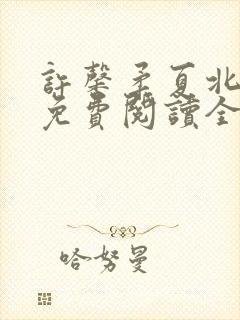 許馨矛夏北
免費閱讀全
哈努曼